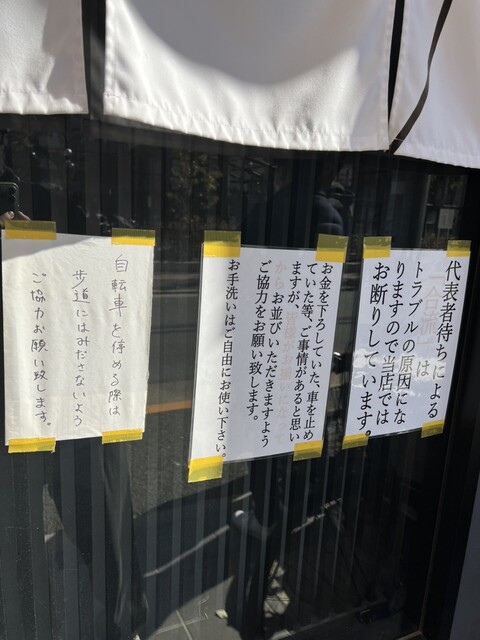 代表者待ちによる
合流 は
トラブルの原因にな
りますので当店では
お断りしています。
お金を下ろしていた、車を止め
ていた等、ご事情があると思い
ますが、
から お並びいただきますよう
ご協力をお願い致します。
お手洗いはご自由にお使い下さい。
自転車を停める際は
歩道にはみださないよう
ご協力お願い致します。